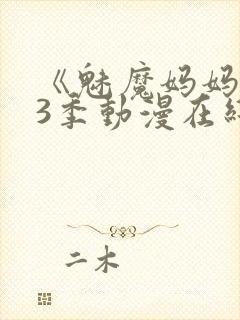 《魅魔妈妈
3季動漫在
二木